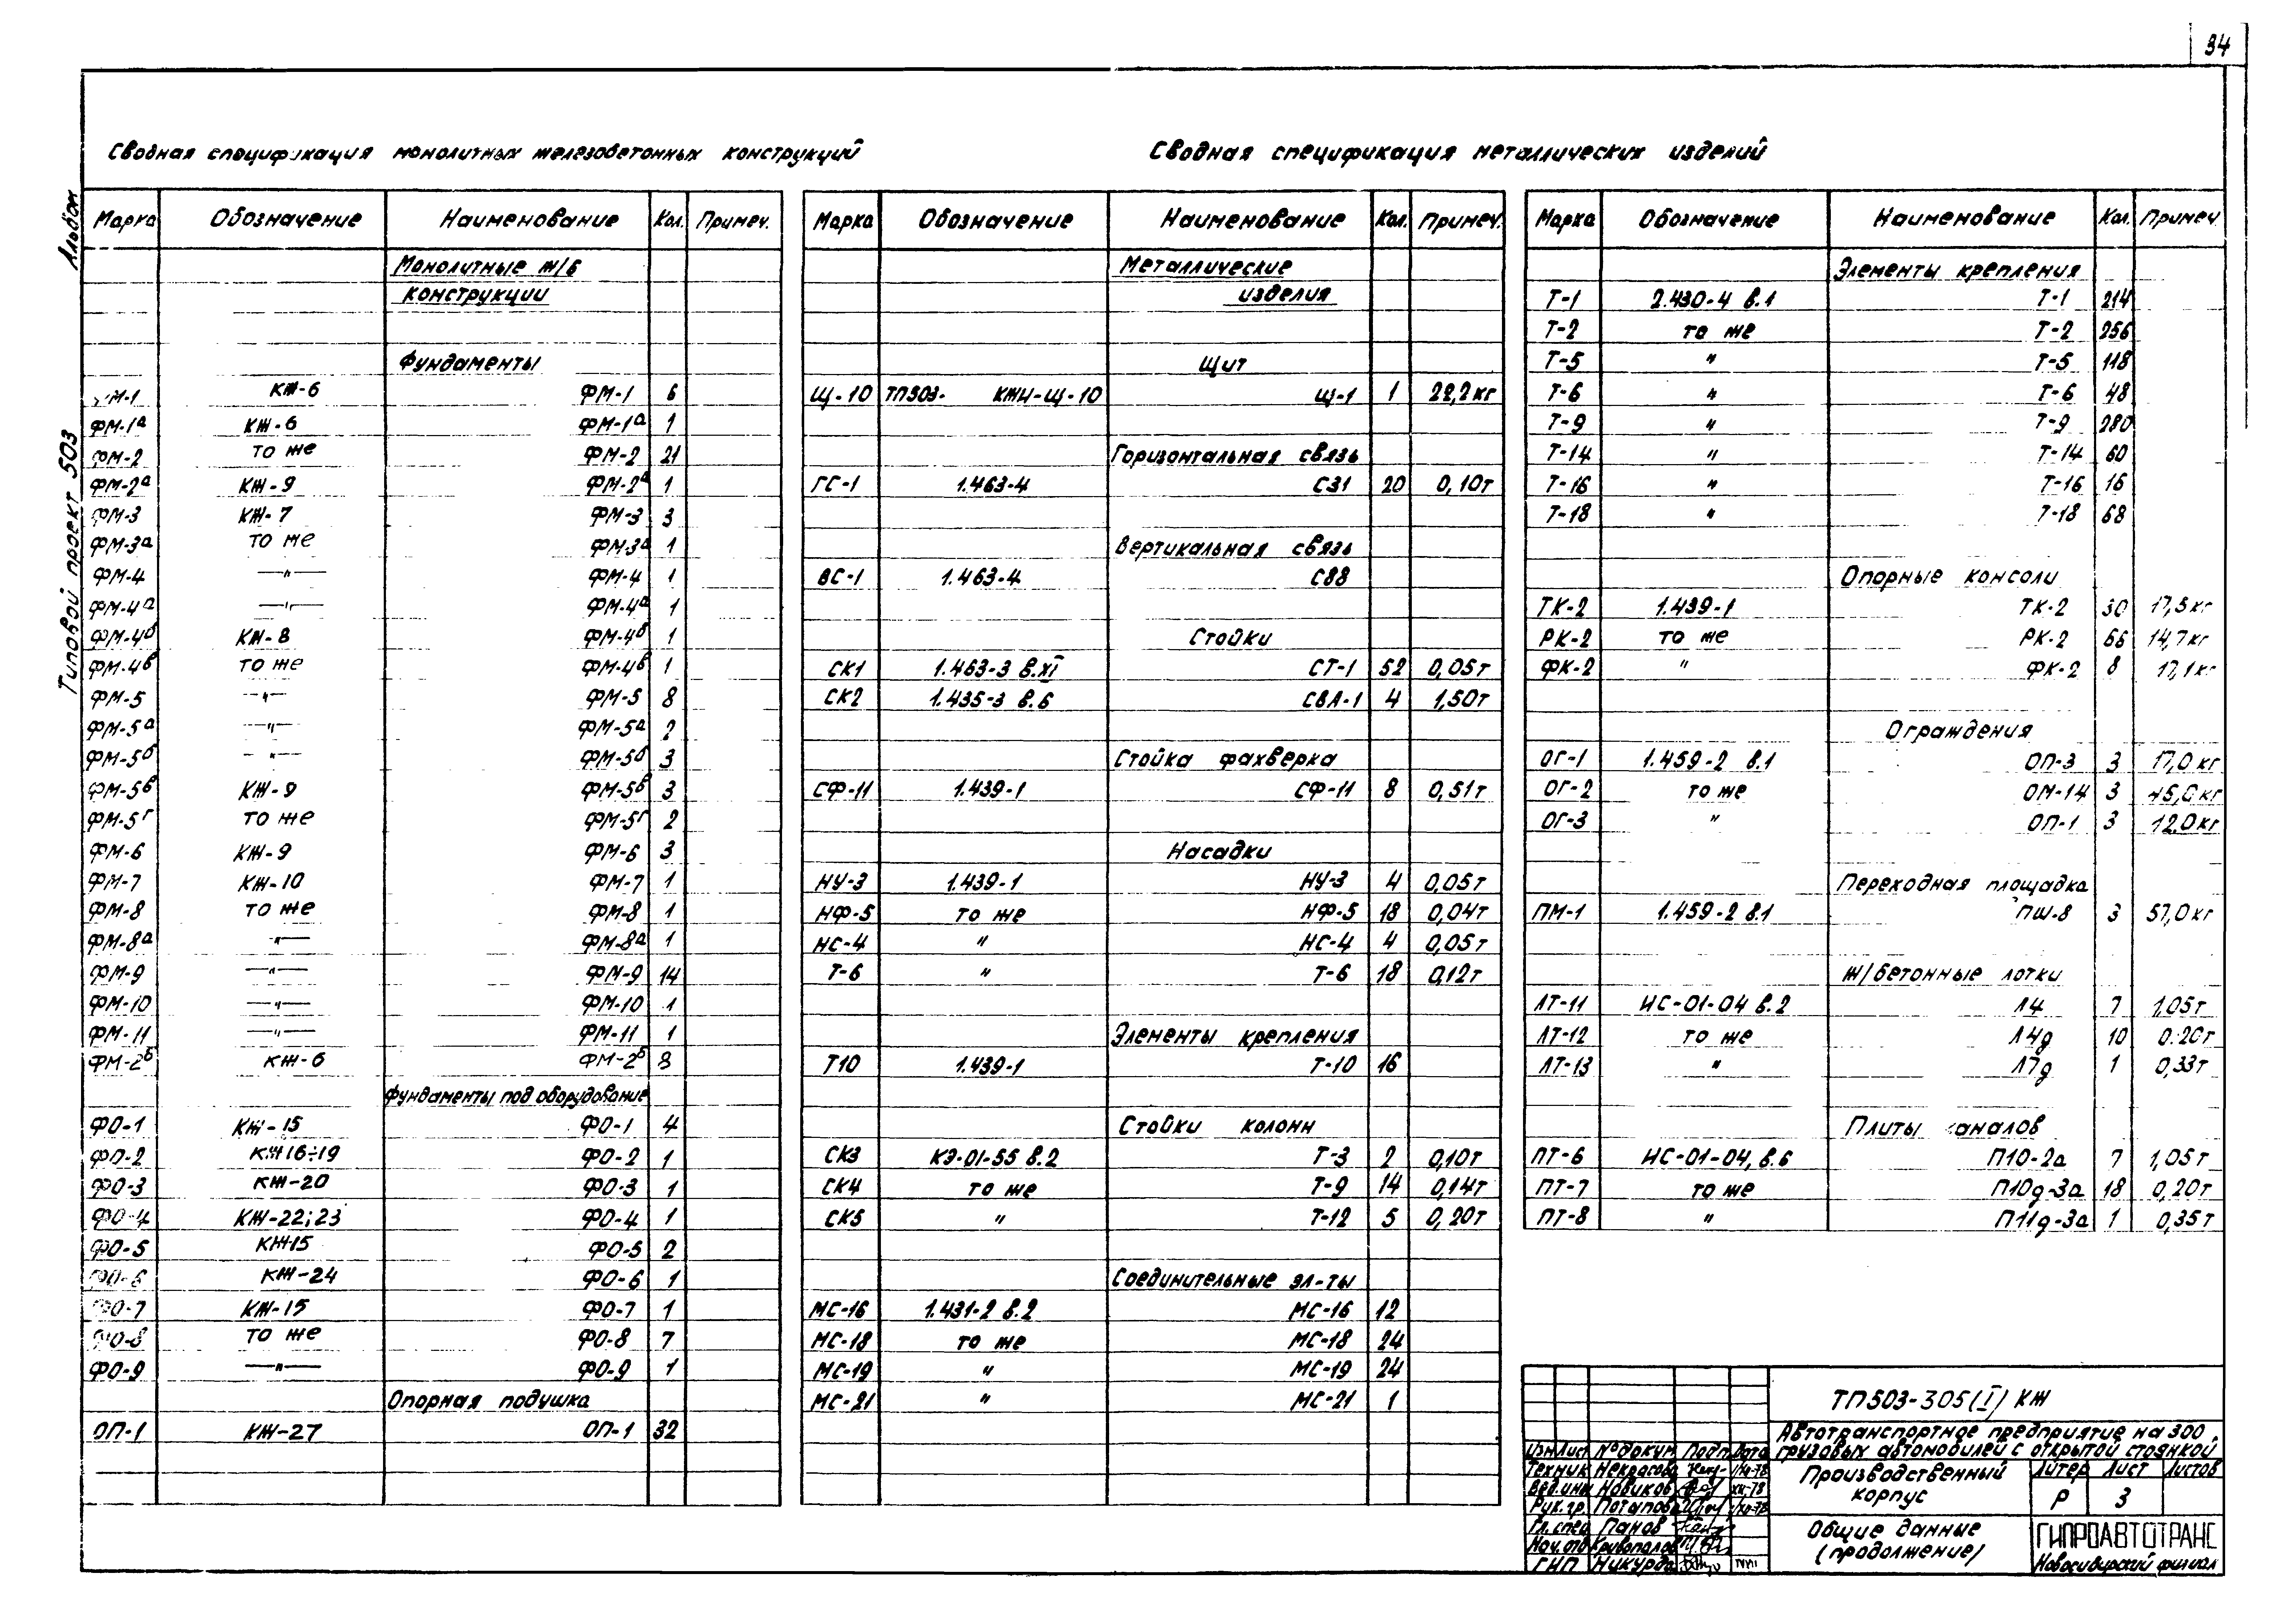 34
Альбом
Типовой проект 503
Сводная спецификация монолитных железобетонных конструкций
Марка Обозначение Наименование Кол. Примеч.
Монолитные ж/б
конструкции
Фундаменты
КЖ-6 ФМ-1 6
ФМ-1а КЖ-6 ФМ-1а 1
ФМ-2 то же ФМ-2 21
ФМ-2а КЖ-9 ФМ-2а 1
ФМ-3 КЖ-7 ФМ-3 3
ФМ-3а то же ФМ-3а 1
ФМ-4 —"— ФМ-4 1
ФМ-4а —"— ФМ-4а 1
ФМ-4б КЖ-8 ФМ-4б 1
ФМ-4в то же ФМ-4в 1
ФМ-5 —"— ФМ-5 8
ФМ-5а —"— ФМ-5а 2
ФМ-5б —"— ФМ-5б 3
ФМ-5в КЖ-9 ФМ-5в 3
ФМ-5г то же ФМ-5г 2
ФМ-6 КЖ-9 ФМ-6 3
ФМ-7 КЖ-10 ФМ-7 1
ФМ-8 то же ФМ-8 1
ФМ-8а —"— ФМ-8а 1
ФМ-9 —"— ФМ-9 14
ФМ-10 —"— ФМ-10 1
ФМ-11 —"— ФМ-11 1
ФМ-2б КЖ-6 ФМ-2б 8
Фундаменты под оборудование
ФО-1 КЖ-15 ФО-1 4
ФО-2 КЖ16÷19 ФО-2 1
ФО-3 КЖ-20 ФО-3 1
ФО-4 КЖ-22;23 ФО-4 1
ФО-5 КЖ15 ФО-5 2
ФО-6 КЖ-24 ФО-6 1
ФО-7 КЖ-15 ФО-7 1
ФО-8 то же ФО-8 7
ФО-9 —"— ФО-9 1
Опорная подушка
ОП-1 КЖ-27 ОП-1 32
Сводная спецификация металлических изделий
Марка Обозначение Наименование Кол. Примеч.
Металлические
изделия
Щит
Щ-10 ТП503- КЖИ-Щ-10 Щ-1 1 22,2кг
Горизонтальная связь
ГС-1 1.463-4 С31 20 0,10т
Вертикальная связь
ВС-1 1.463-4 С88
Стойки
СК1 1.463-3 в.XI СТ-1 52 0,05т
СК2 1.435-3 в.6 СВА-1 4 1,50т
Стойка фахверка
СФ-11 1.439-1 СФ-11 8 0,51т
Насадки
НУ-3 1.439-1 НУ-3 4 0,05т
НФ-5 то же НФ-5 18 0,04т
НС-4 " НС-4 4 0,05т
Т-6 " Т-6 18 0,12т
Элементы крепления
Т10 1.439-1 Т-10 16
Стойки колонн
СК3 КЭ-01-55 в.2 Т-3 2 0,10т
СК4 то же Т-9 14 0,14т
СК5 " Т-12 5 0,20т
Соединительные эл-ты
МС-16 1.431-2 в.2 МС-16 12
МС-18 то же МС-18 24
МС-19 " МС-19 24
МС-21 " МС-21 1
Марка Обозначение Наименование Кол. Примеч
Элементы крепления
Т-1 2.430-4 в.1 Т-1 214
Т-2 то же Т-2 256
Т-5 " Т-5 118
Т-6 " Т-6 48
Т-9 " Т-9 280
Т-14 " Т-14 60
Т-16 " Т-16 16
Т-18 " Т-18 68
Опорные консоли
ТК-2 1.439-1 ТК-2 30 17,5кг
РК-2 то же РК-2 66 14,7кг
ФК-2 " ФК-2 8 17,1кг
Ограждения
ОГ-1 1.459-2 в.1 ОП-3 3 17,0кг
ОГ-2 то же ОМ-14 3 45,0кг
ОГ-3 " ОП-1 3 12,0кг
Переходная площадка
ПМ-1 1.459-2 в.1 ПШ-8 3 57,0кг
Ж/бетонные лотки
ЛТ-11 ИС-01-04 в.2 Л4 7 1,05т
ЛТ-12 то же Л4д 10 0.20т
ЛТ-13 " Л7д 1 0,33т
Плиты каналов
ПТ-6 ИС-01-04, в.6 П10-2а 7 1,05т
ПТ-7 то же П10д-3а 18 0,20т
ПТ-8 " П11д-3а 1 0,35т
ТП503-305(I) КЖ
Автотранспортное предприятие на 300
грузовых автомобилей с открытой стоянкой
Изм Лист №докум Подп Дата
Техник Некрасова
Вед.инж Новиков XII-78
Рук.гр. Потапова
Гл.спец Панов
Нач.отд Криволапов
ГИП Никурда
Производственный
корпус
Литер Лист Листов
Р 3
Общие данные
(продолжение)
ГИПРОАВТОТРАНС
Новосибирский филиал